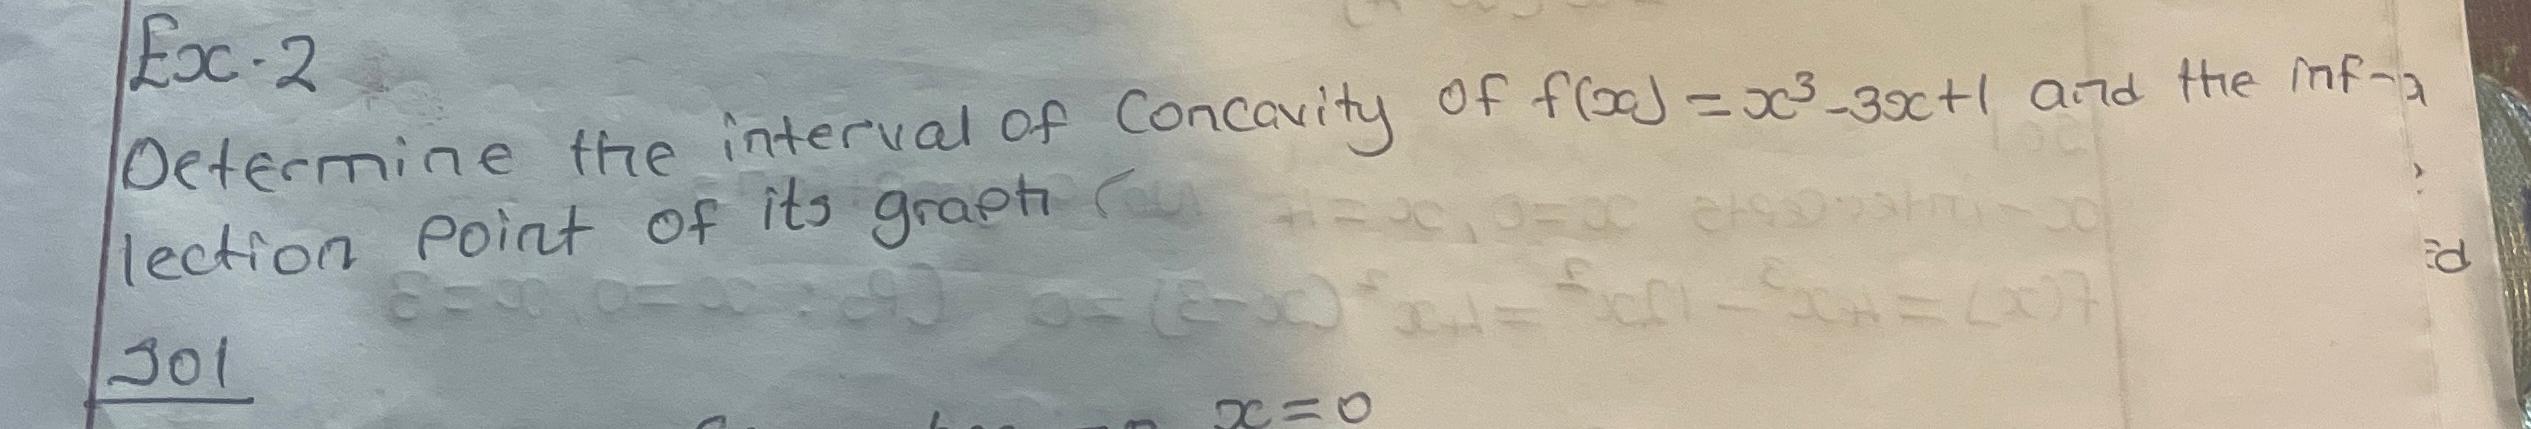 Ex. 2
Determine the interval of concavity of f(x) = x³-3x+1 and the inf-
lection point of its graph
Sol
x=0